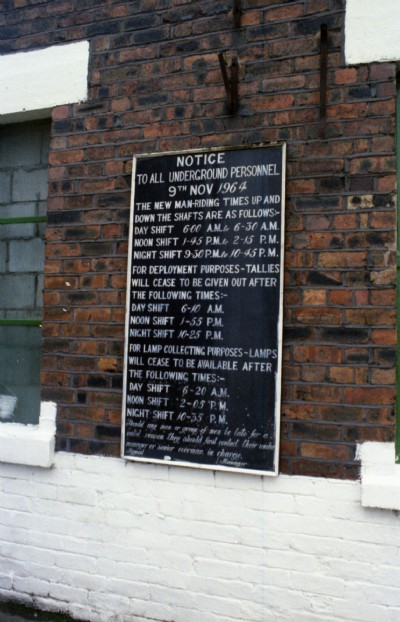 NOTICE
TO ALL UNDERGROUND PERSONNEL
9TH NOV 1964
THE NEW MAN-RIDING TIMES UP AND
DOWN THE SHAFTS ARE AS FOLLOWS:-
DAY SHIFT 6·00 A.M. to 6-30 A.M.
NOON SHIFT 1-45 P.M. to 2-15 P.M.
NIGHT SHIFT 9-30 P.M. to 10-45 P.M.
FOR DEPLOYMENT PURPOSES-TALLIES
WILL CEASE TO BE GIVEN OUT AFTER
THE FOLLOWING TIMES:-
DAY SHIFT 6-10 A.M.
NOON SHIFT 1-55 P.M.
NIGHT SHIFT 10-25 P.M.
FOR LAMP COLLECTING PURPOSES-LAMPS
WILL CEASE TO BE AVAILABLE AFTER
THE FOLLOWING TIMES:-
DAY SHIFT 6-20 A.M.
NOON SHIFT 2-05 P.M.
NIGHT SHIFT 10-35 P.M.
Should any man or group of men be late for a
valid reason they should first contact their under
manager or senior overman in charge.
Signed Manager